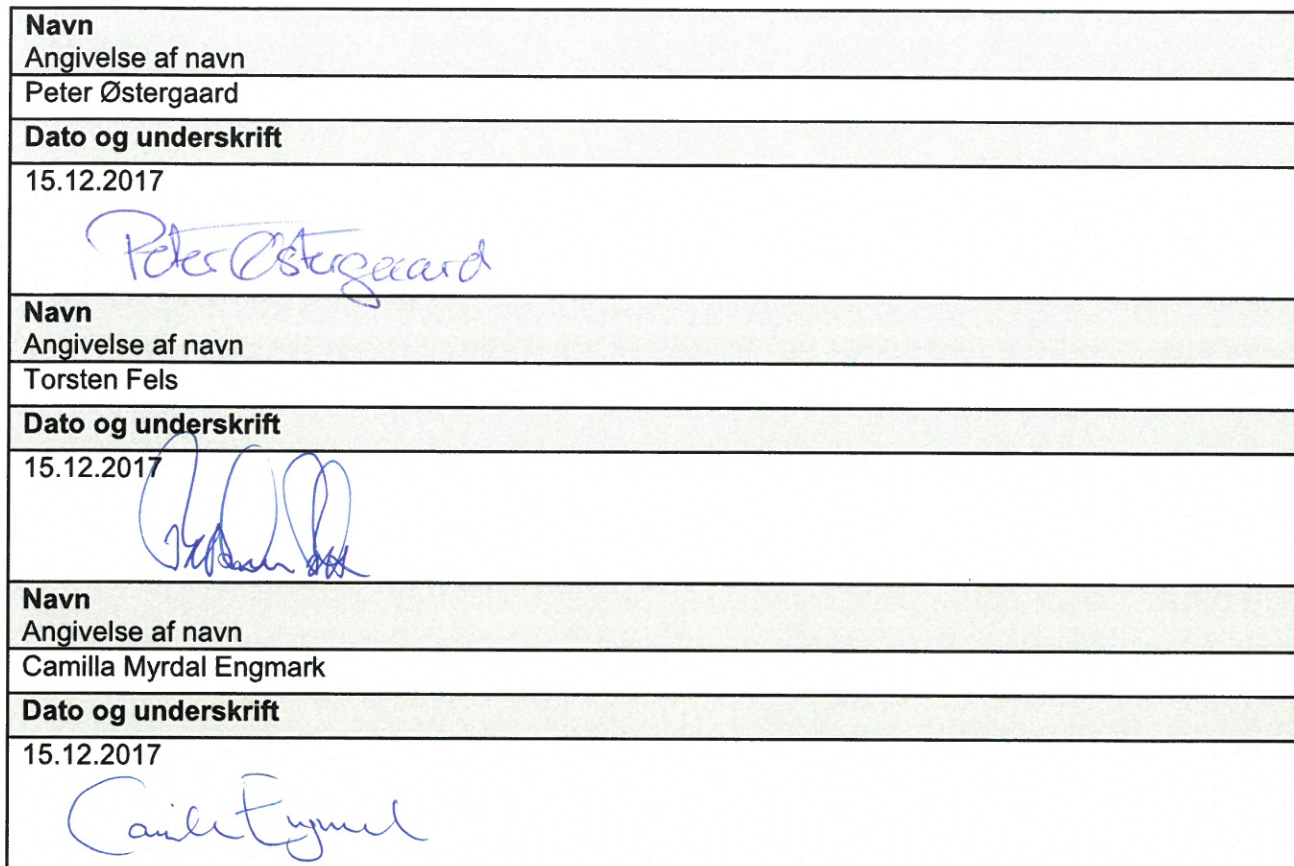 Navn
Angivelse af navn
Peter Østergaard
Dato og underskrift
15.12.2017
Peter Østergaard
Navn
Angivelse af navn
Torsten Fels
Dato og underskrift
15.12.2017
Navn
Angivelse af navn
Camilla Myrdal Engmark
Dato og underskrift
15.12.2017